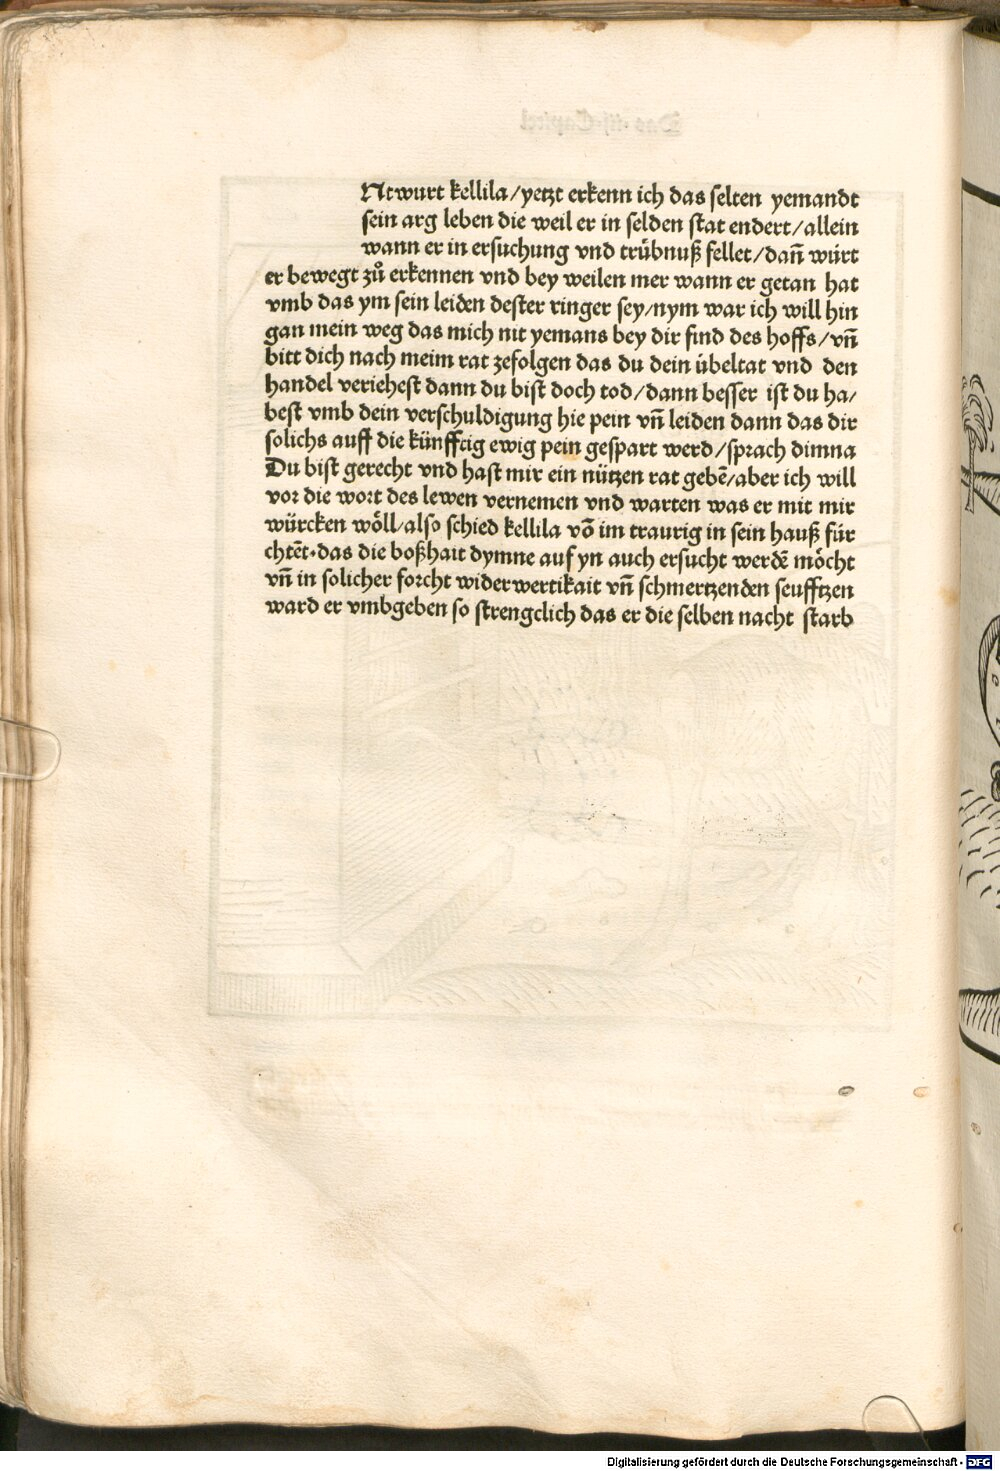 Ntwurt kellila/yetzt erkenn ich das selten yemandt
sein arg leben die weil er in selden stat endert/allein
wann er in ersuchung vnd trübnuß fellet/dañ würt
er bewegt zů erkennen vnd bey weilen mer wann er getan hat
vmb das ym sein leiden dester ringer sey/nym war ich will hin
gan mein weg das mich nit yemans bey dir find des hoffs/vñ
bitt dich nach meim rat zefolgen das du dein übeltat vnd den
handel veriehest dann du bist doch tod/dann besser ist du ha/
best vmb dein verschuldigung hie pein vñ leiden dann das dir
solichs auff die künfftig ewig pein gespart werd/sprach dimna
Du bist gerecht vnd hast mir ein nützen rat gebē/aber ich will
vor die wort des lewen vernemen vnd warten was er mit mir
würcken wöll/also schied kellila võ im traurig in sein hauß für
chtēt·das die boßhait dymne auf yn auch ersucht werdē möcht
vñ in solicher forcht widerwertikait vñ schmertzenden seufftzen
ward er vmbgeben so strengclich das er die selben nacht starb
Digitalisierung gefördert durch die Deutsche Forschungsgemeinschaft - DFG